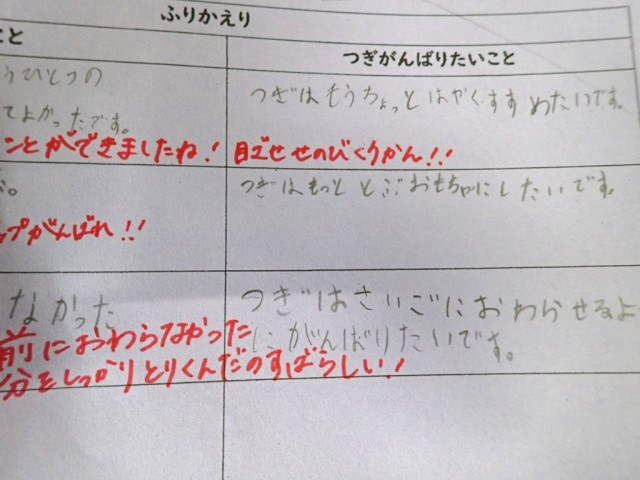 ふりかえり
こと
つぎがんばりたいこと
うひとつの
てよかったです。
つぎはもうちょっとはやくすすめたいです。
ことができましたね! 目ざせせのびくりかん!!
。
つぎはもっととぶおもちゃにしたいです。
ップがんばれ!!
なかった
つぎはさいごにおわらせるよ
にがんばりたいです。
前におわらなかった
分をしっかりとりくんだのすばらしい!